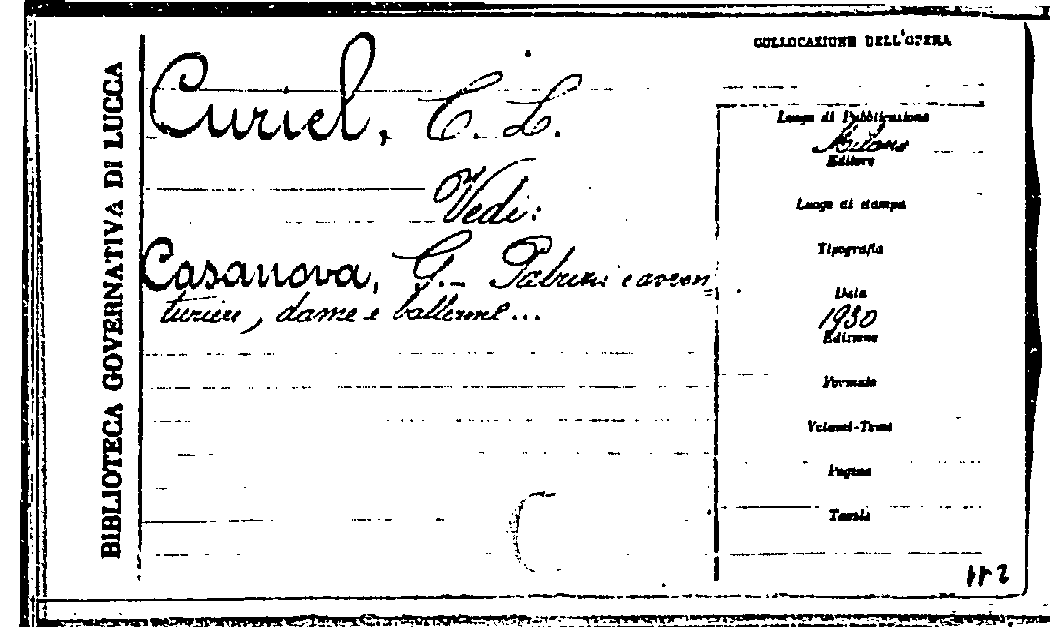 BIBLIOTECA GOVERNATIVA DI LUCCA
Curiel, C. L.
Vedi:
Casanova, G.- Patrizi e avven
turieri, dame e ballerine...
COLLOCAZIONE DELL'OPERA
Luogo di Pubblicazione
Milano
Editore
Luogo di stampa
Tipografia
Data
1930
Edizione
Formato
Volumi-Tomi
Pagine
Tavole